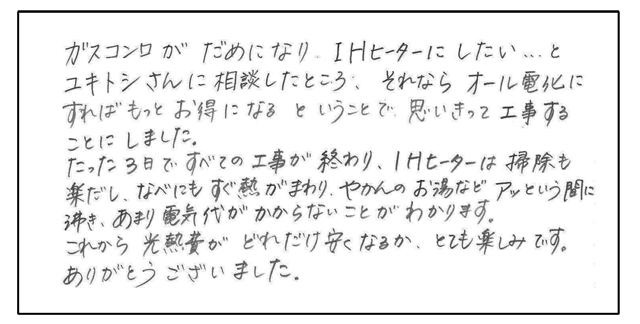 ガスコンロが だめになり、IHヒーターに したい…と
ユキトシさんに 相談したところ、それなら オール電化に
すればもっと お得になる ということで、思いきって 工事する
ことにしました。
たった3日で すべての 工事が 終わり、IHヒーターは 掃除も
楽だし、なべにも すぐ熱がまわり、やかんの お湯など アッという間に
沸き、あまり 電気代が かからないことが わかります。
これから 光熱費が どれだけ安くなるか、とても楽しみです。
ありがとうございました。